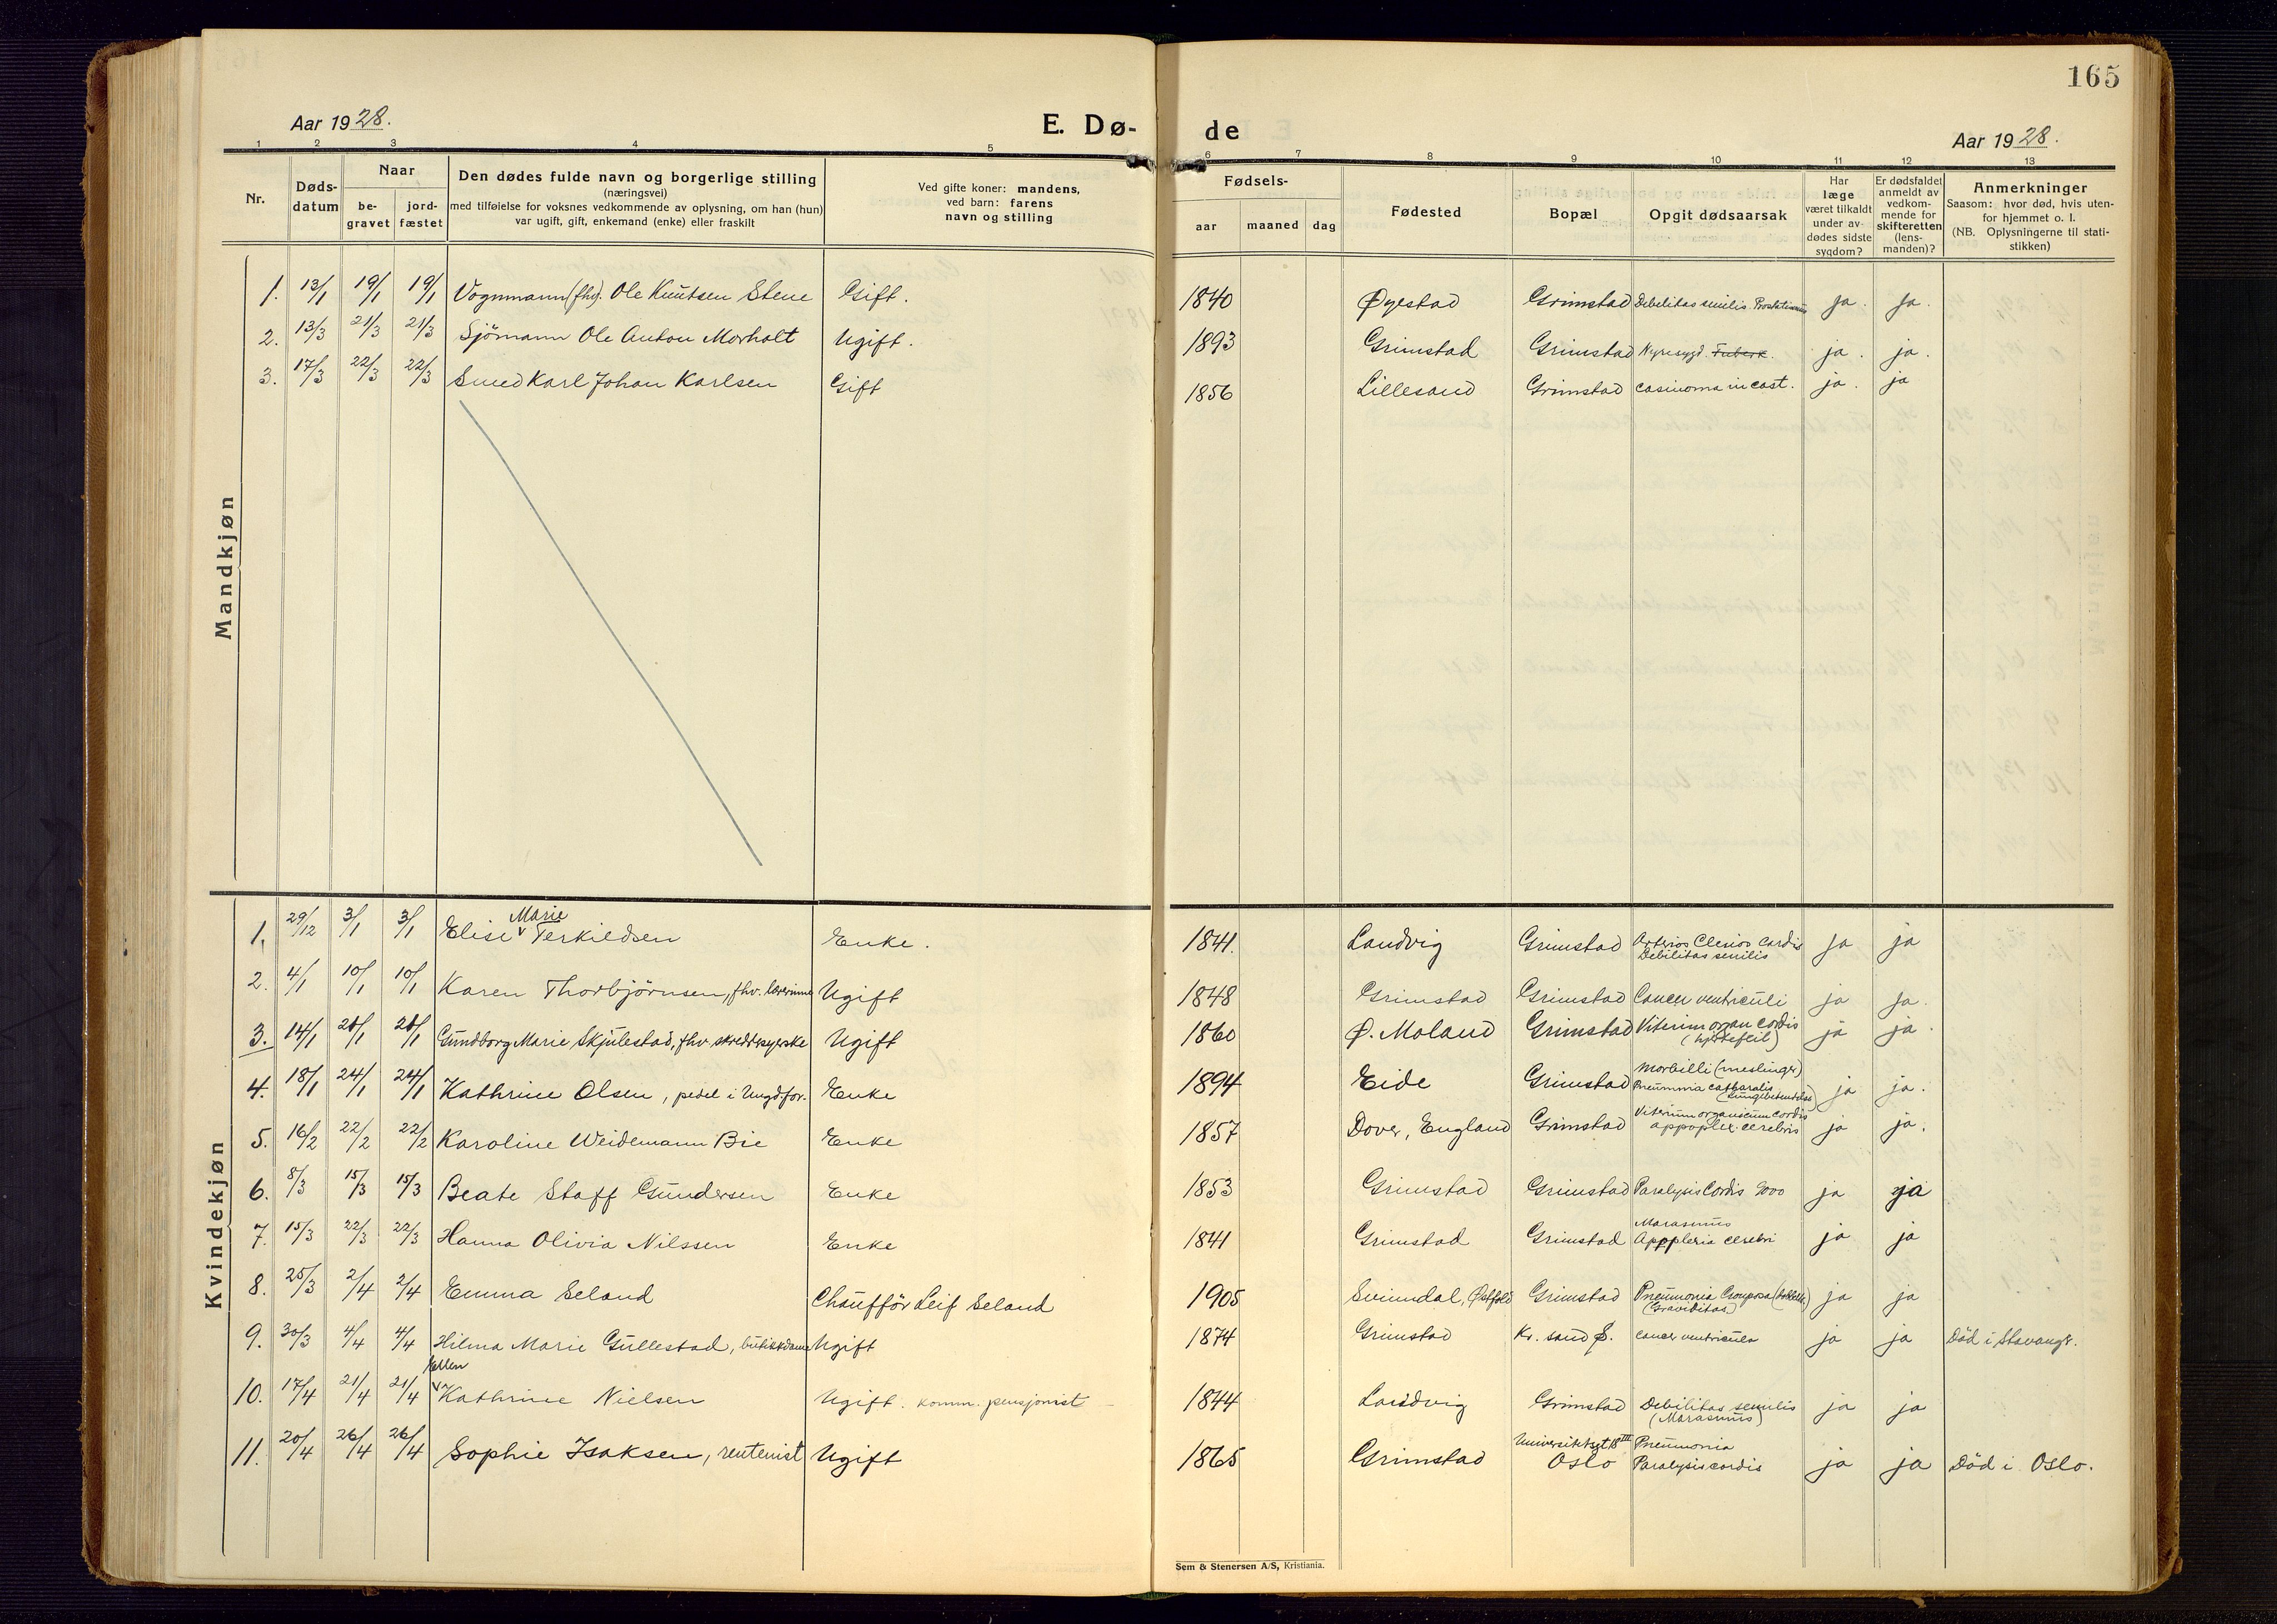 165
Aar 1928.
E. Dø-
de
Aar 1928.
1 2 3 4 5 6 7 8 9 10 11 12 13
Nr.
Døds-
datum
Naar
be-
gravet
jord-
fæstet
Den dødes fulde navn og borgerlige stilling
(næringsvei)
med tilføielse for voksnes vedkommende av oplysning, om han (hun)
var ugift, gift, enkemand (enke) eller fraskilt
Ved gifte koner: mandens,
ved barn: farens
navn og stilling
Fødsels-
aar
maaned
dag
Fødested
Bopæl
Opgit dødsaarsak
Har
læge
været tilkaldt
under av-
dødes sidste
sygdom?
Er dødsfaldet
anmeldt av
vedkom-
mende for
skifteretten
(lens-
manden)?
Anmerkninger
Saasom: hvor død, hvis uten-
for hjemmet o. l.
(NB. Oplysningerne til stati-
stikken)
Mandkjøn
1. 13/1 19/1 19/1 Vognmann (fhv). Ole Knutsen Stene Gift. 1840 Øyestad Grimstad Debilitas senilis. Prostatismus ja. ja.
2. 13/3 21/3 21/3 Sjömann Ole Anton Morholt Ugift. 1893 Grimstad Grimstad Nyresygd. Tuberk. ja. ja.
3. 17/3 22/3 22/3 Smed Karl Johan Karlsen Gift 1856 Lillesand Grimstad casinoma in cast. ja. ja
Kvindekjøn
Marie
1. 29/12 3/1 3/1 Elise Terkildsen Enke. 1841. Landvig Grimstad Arterios Clerios Cardis ja ja
Debilitas senilis
2. 4/1 10/1 10/1 Karen Thorbjörnsen, fhv. lærerinne Ugift 1848 Grimstad Grimstad Cancer ventriculi ja ja.
3. 14/1 20/1 20/1 Gundborg Marie Skjulestad, fhv. skreddersyerske Ugift 1860 Ø. Moland Grimstad Viterim organ Cordis ja ja.
(hjertefeil)
4. 18/1 24/1 24/1 Kathrine Olsen, pedel i Ungd.for. Enke 1894 Eide Grimstad Morbilli (meslinger) ja ja.
Pneumonia catharalis
(Lungebetendelse)
5. 16/2 22/2 22/2 Karoline Weidemann Bie Enke 1857 Dover, England Grimstad Viterium organicum cordis ja ja.
appoplex. cerebris
6. 8/3 15/3 15/3 Beate Staff Gundersen Enke 1853 Grimstad Grimstad Paralysis Cordis ja ja
7. 15/3 22/3 22/3 Hanna Olivia Nilssen Enke 1841 Grimstad Grimstad Marasmus ja ja
Appplexia cerebri
8. 25/3 2/4 2/4 Emma Seland Chaufför Leif Seland 1905 Svinndal, Østfold Grimstad Pneumonia Crouposa ja ja
(Graviditas)
9. 30/3 4/4 4/4 Hilma Marie Gullestad, butikkdame Ugift 1874 Grimstad Kr. sand S. cancer ventricula ja ja Död i Stavangr.
Ellen
10. 17/4 21/4 21/4 Kathrine Nielsen Ugift. komm. pensjonist 1844 Landvig Grimstad Debilitas senilis ja ja
(Marasmus)
11. 20/4 26/4 26/4 Sophie Isaksen, rentenist Ugift 1865 Grimstad Universitetsgt 18 III Pneumonia ja ja Död i Oslo.
Oslo Paralysis cordis
Sem & Stenersen A/S, Kristiania.